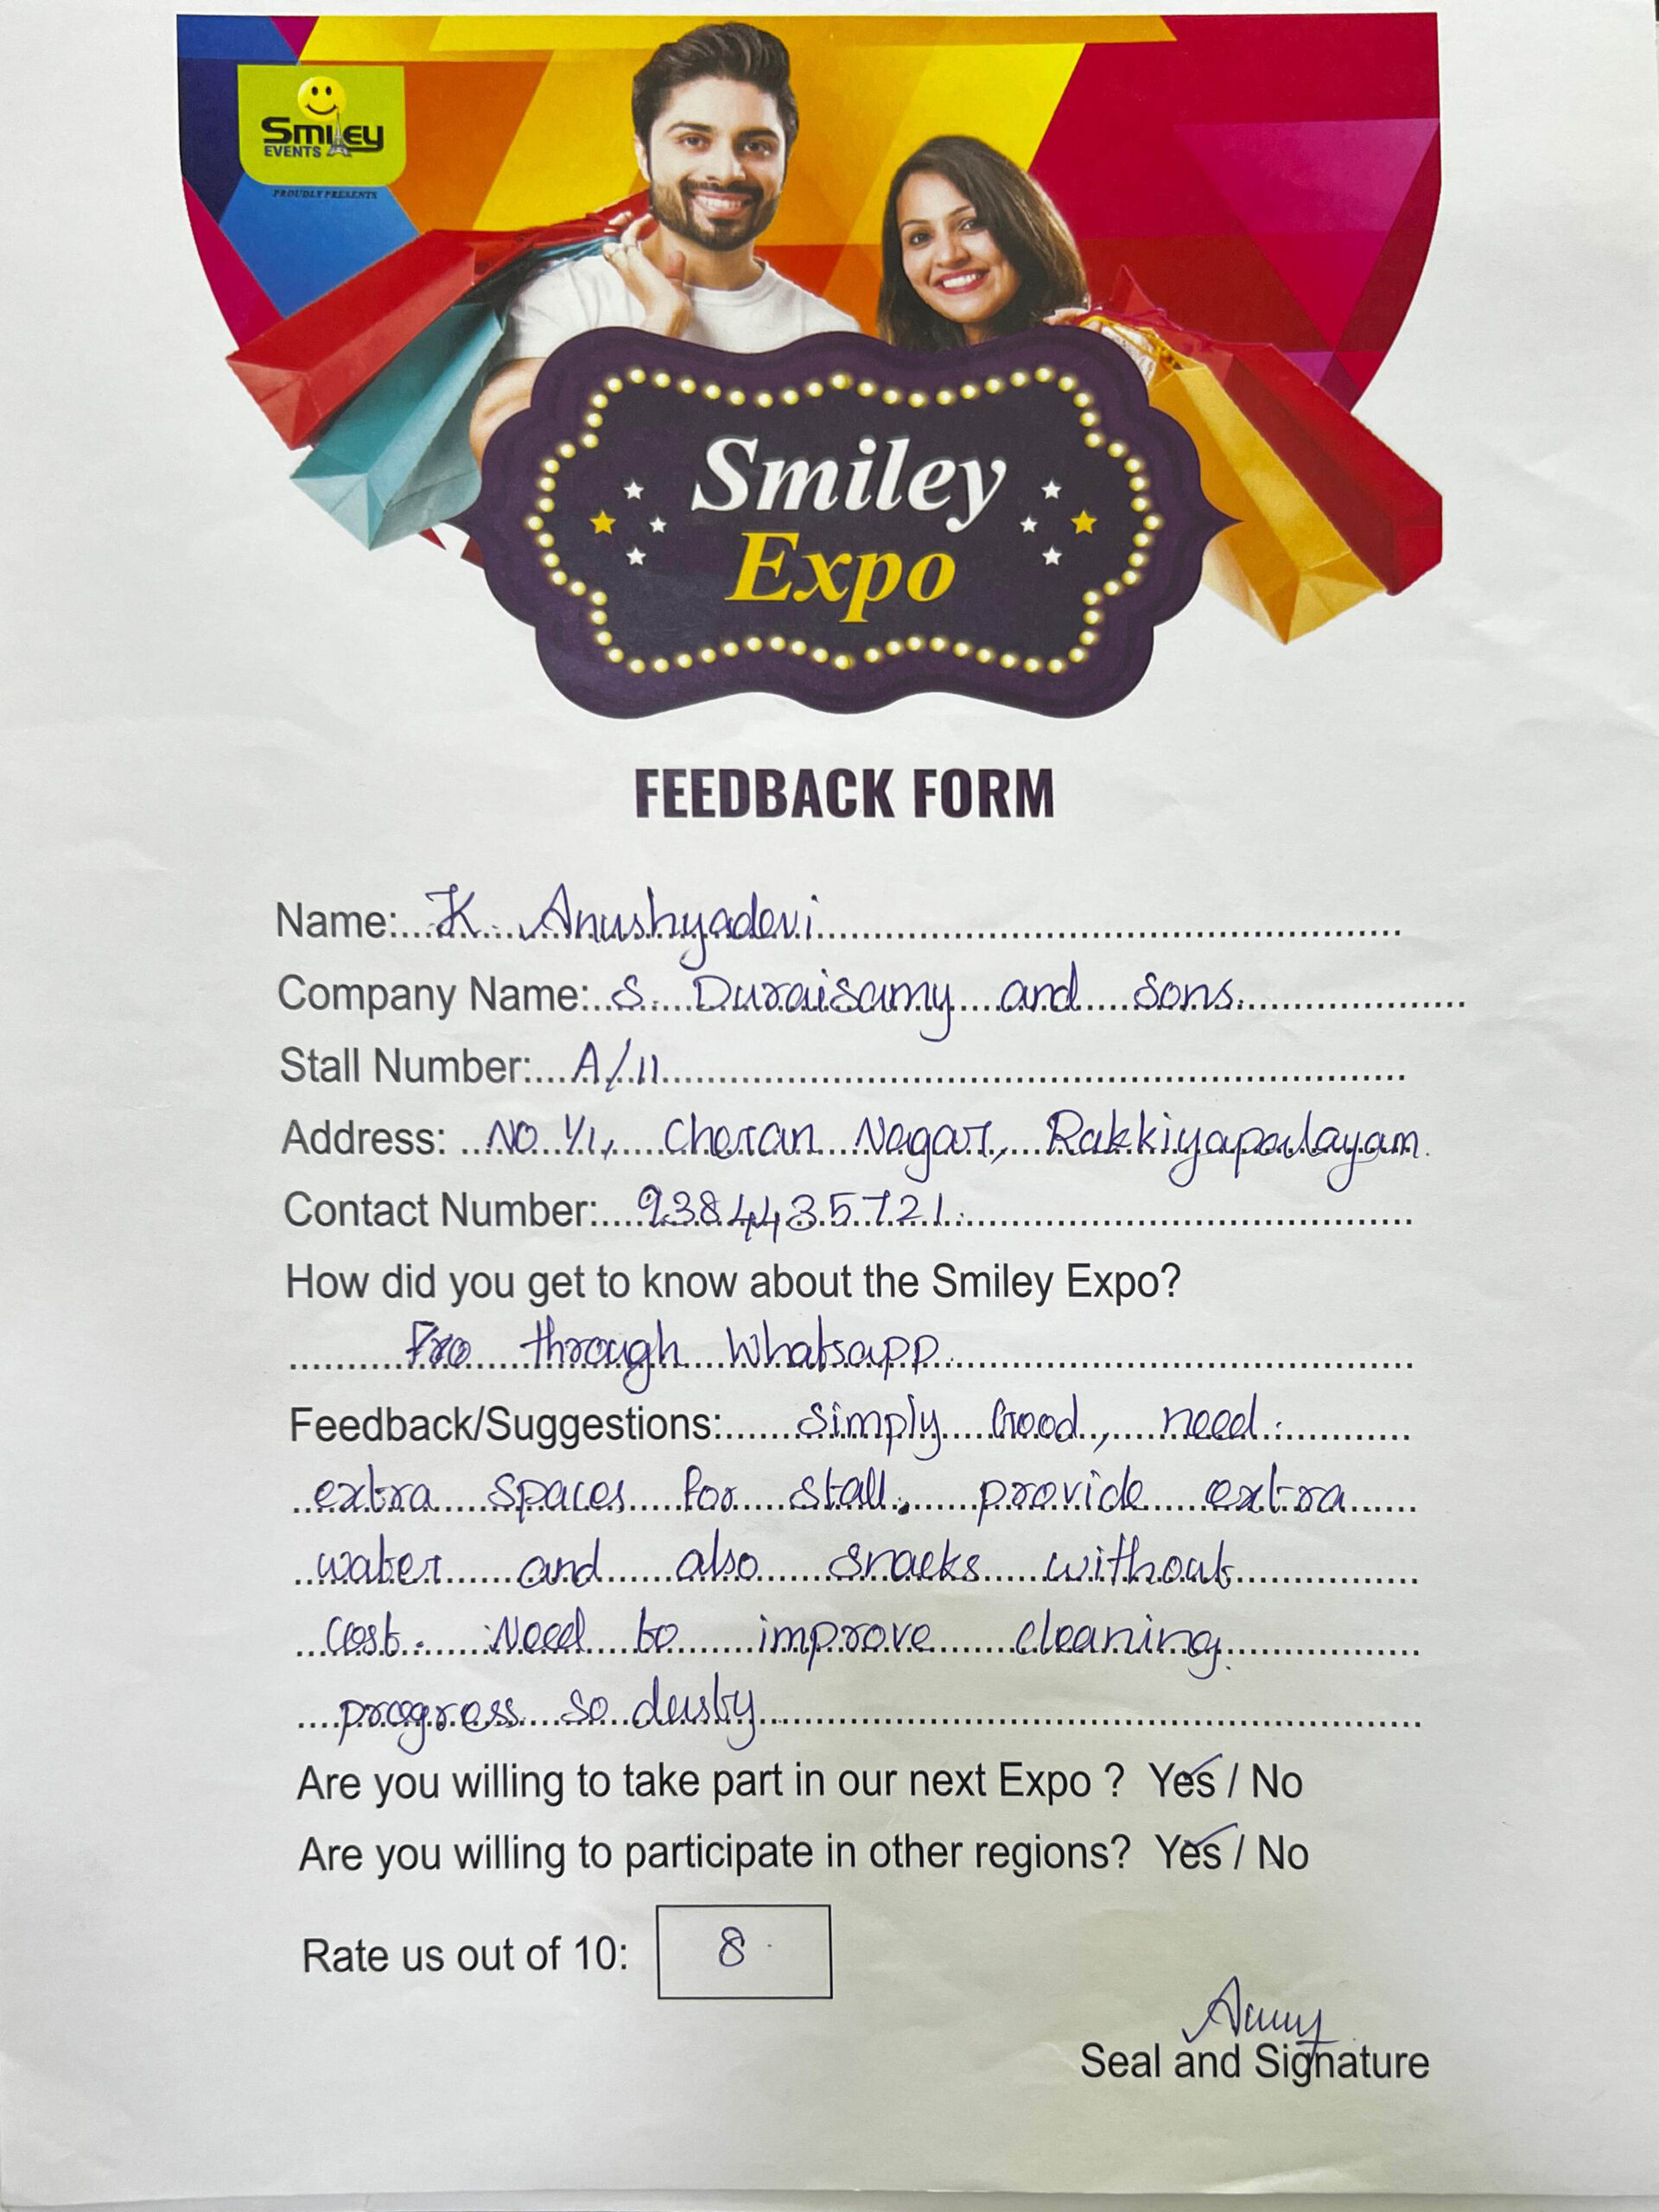 Smiley
EVENTS
PROUDLY PRESENTS
Smiley
Expo
FEEDBACK FORM
Name: K. Anushyadevi
Company Name: S. Duraisamy and Sons.
Stall Number: A/11
Address: NO 1/1, Cheran Nagar, Rakkiyapalayam.
Contact Number: 9384435721.
How did you get to know about the Smiley Expo?
through Whatsapp.
Feedback/Suggestions: Simply Good, need
extra spaces for stall. provide extra
water and also snacks without
Cost. Need to improve cleaning
progress so dusty
Are you willing to take part in our next Expo ? Yes / No
Are you willing to participate in other regions? Yes / No
Rate us out of 10: 8
Seal and Signature